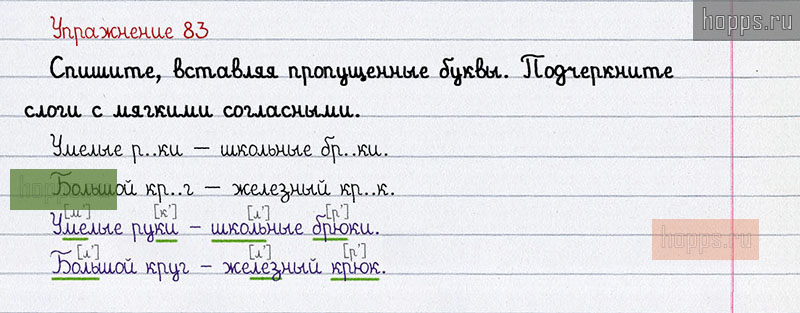 hopps.ru
Упражнение 83
Спишите, вставляя пропущенные буквы. Подчеркните
слоги с мягкими согласными.
Умелые р..ки – школьные бр..ки.
Большой кр..г – железный кр..к.
[м'] [к'] [л'] [р']
Умелые руки – школьные брюки.
hopps.ru
[л'] [л'] [р']
Большой круг – железный крюк.